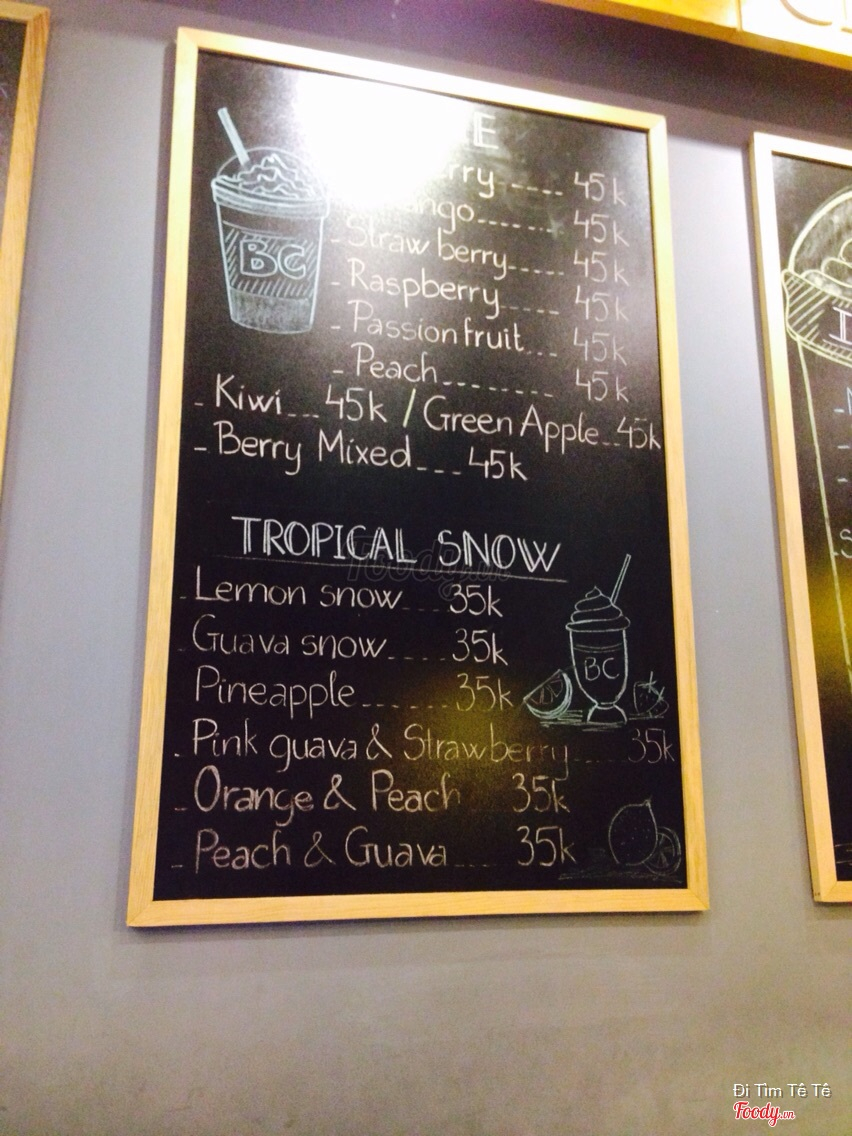 45k
45k
- Strawberry----- 45k
- Raspberry----- 45k
- Passion fruit--- 45k
- Peach-------- 45k
- Kiwi--- 45k / Green Apple--45k
- Berry Mixed--- 45k
BC
TROPICAL SNOW
- Lemon snow--- 35k
- Guava snow---- 35k
Pineapple------ 35k
- Pink guava & Strawberry---- 35k
- Orange & Peach 35k
- Peach & Guava--- 35k
BC
Foody.vn
Đi Tìm Tê Tê
Foody.vn